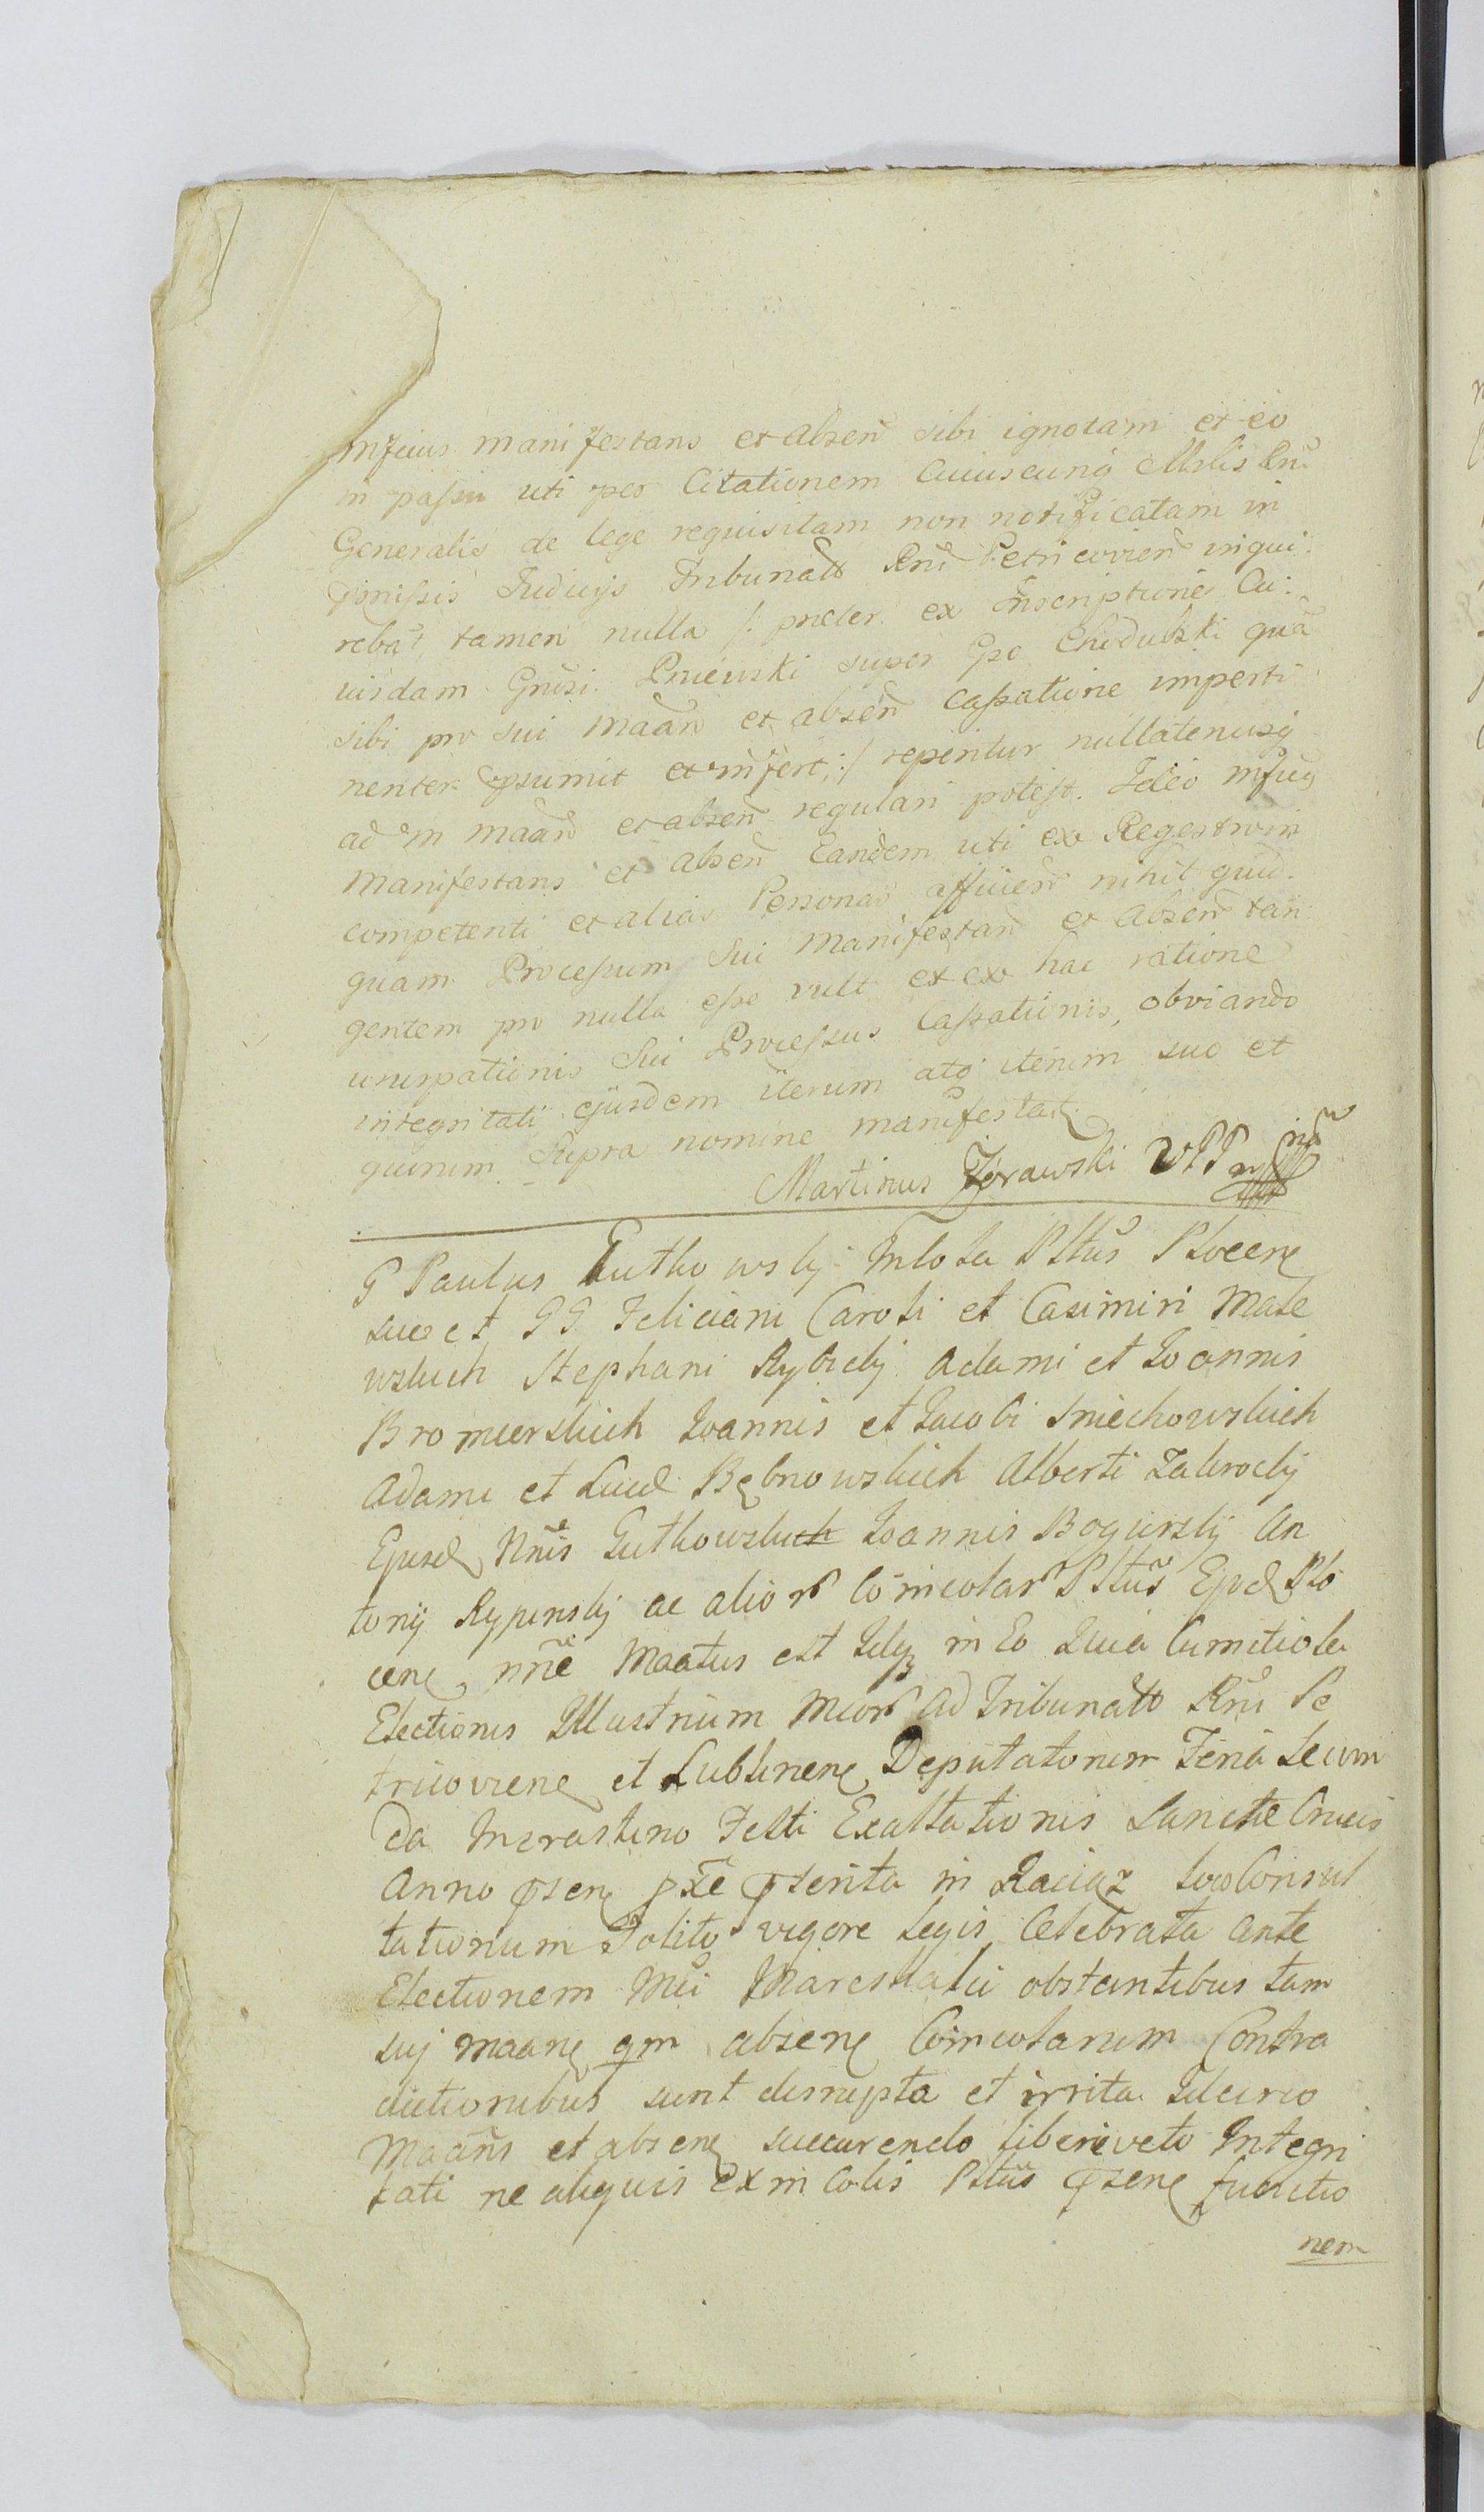 infeius manifestans et absen̄ sibi ignotam et eo
in passu uti per Citationem Cuiuscunq Mslis Rn̄i
Generalis de lege requisitam non notificatam in
Judicijs Tribunalib Rn̄i Petricovien̄ inqui:
rebat, tamen nulla /: præter ex Inscriptione Cu:
iusdam Gn̄osi Pniewski super Gso Chodubski quā
sibi pro sui maan̄ et absen̄ cassatione imperti
nenter assumit et infert, :/ reperitur nullatenusq
ad in maan̄ et absen̄ regulari potest. Ideo
manifestans et absen̄ Eandem uti ex Regestro in
competenti et alias Personas afficien̄ nihil quid:
quam Processum Sui manifestan̄ et absen̄ tan:
gentem pro nulla esse vult et ex hac ratione
usurpationis Sui Processus Cassationis, obviando
integritati ejusdem iterum atq iterum suo et
quorum Supra nomine manifestat.
Martinus Zórawski VPP mp
G Paulus Gutkowskij Incola Pltūs Plocen
suo et GG Feliciani Caroli et Casimiri Male
wskich Stephani Rybickij Adami et Joannis
Bromierskich Joannis et Jacobi Sniechowskich
Adami et Luced Bębnowskich Alberti Zakrockij
Ejusd Nn̄is Gutkowskich Joannis Bogurskij An
tonij Rypinskij ac alior Co incolar Pltūs Ejusd Plo
cen nn̄e Maatus est Idq in Eo Quia Comitiola
Electionis Illustrium Mcor ad Tribunalb Rn̄i Pe
tricovien et Lublinen Deputatorum Feria Secun
da in crastino Festi Exaltationis Sanctæ Crucis
Anno præsen pxe præterita in Raciąz loco Consul
tationum Solito vigore Legis Celebrata ante
Electionem Mci Mareschalci obstantibus tam
sui maan qm absen Coincolarum Contra
dictionibus sunt disrupta et irrita. Idcirco
Maan̄s et absen succurendo liberi veto Integri
tati ne aliquis ex in Colis Pltūs præsen functio
nem